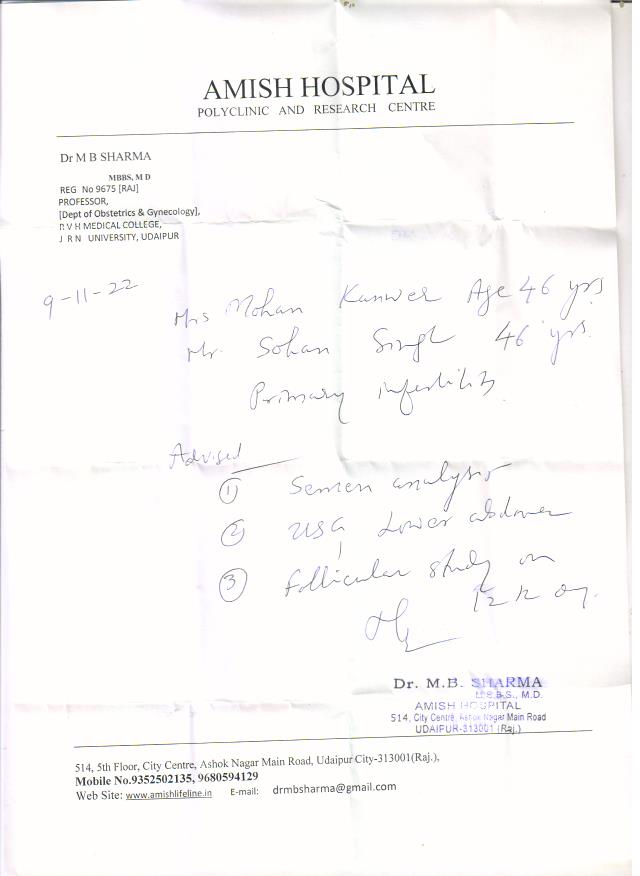 AMISH HOSPITAL
POLYCLINIC AND RESEARCH CENTRE
Dr M B SHARMA
MBBS, M D
REG No 9675 [RAJ]
PROFESSOR,
[Dept of Obstetrics & Gynecology],
P V H MEDICAL COLLEGE,
J R N UNIVERSITY, UDAIPUR
9-11-22
Mrs Mohan Kanwer Age 46 yrs
Mr. Sohan Singh 46 yrs.
Primary infertility
Advised
① Semen analysis
② USG Lower abdomen
③ Follicular study on
12th day.
Dr. M.B. SHARMA
M.B.B.S., M.D.
AMISH HOSPITAL
514, City Centre, Ashok Nagar Main Road
UDAIPUR-313001 (Raj.)
514, 5th Floor, City Centre, Ashok Nagar Main Road, Udaipur City-313001(Raj.),
Mobile No.9352502135, 9680594129
Web Site: www.amishlifeline.in E-mail: drmbsharma@gmail.com